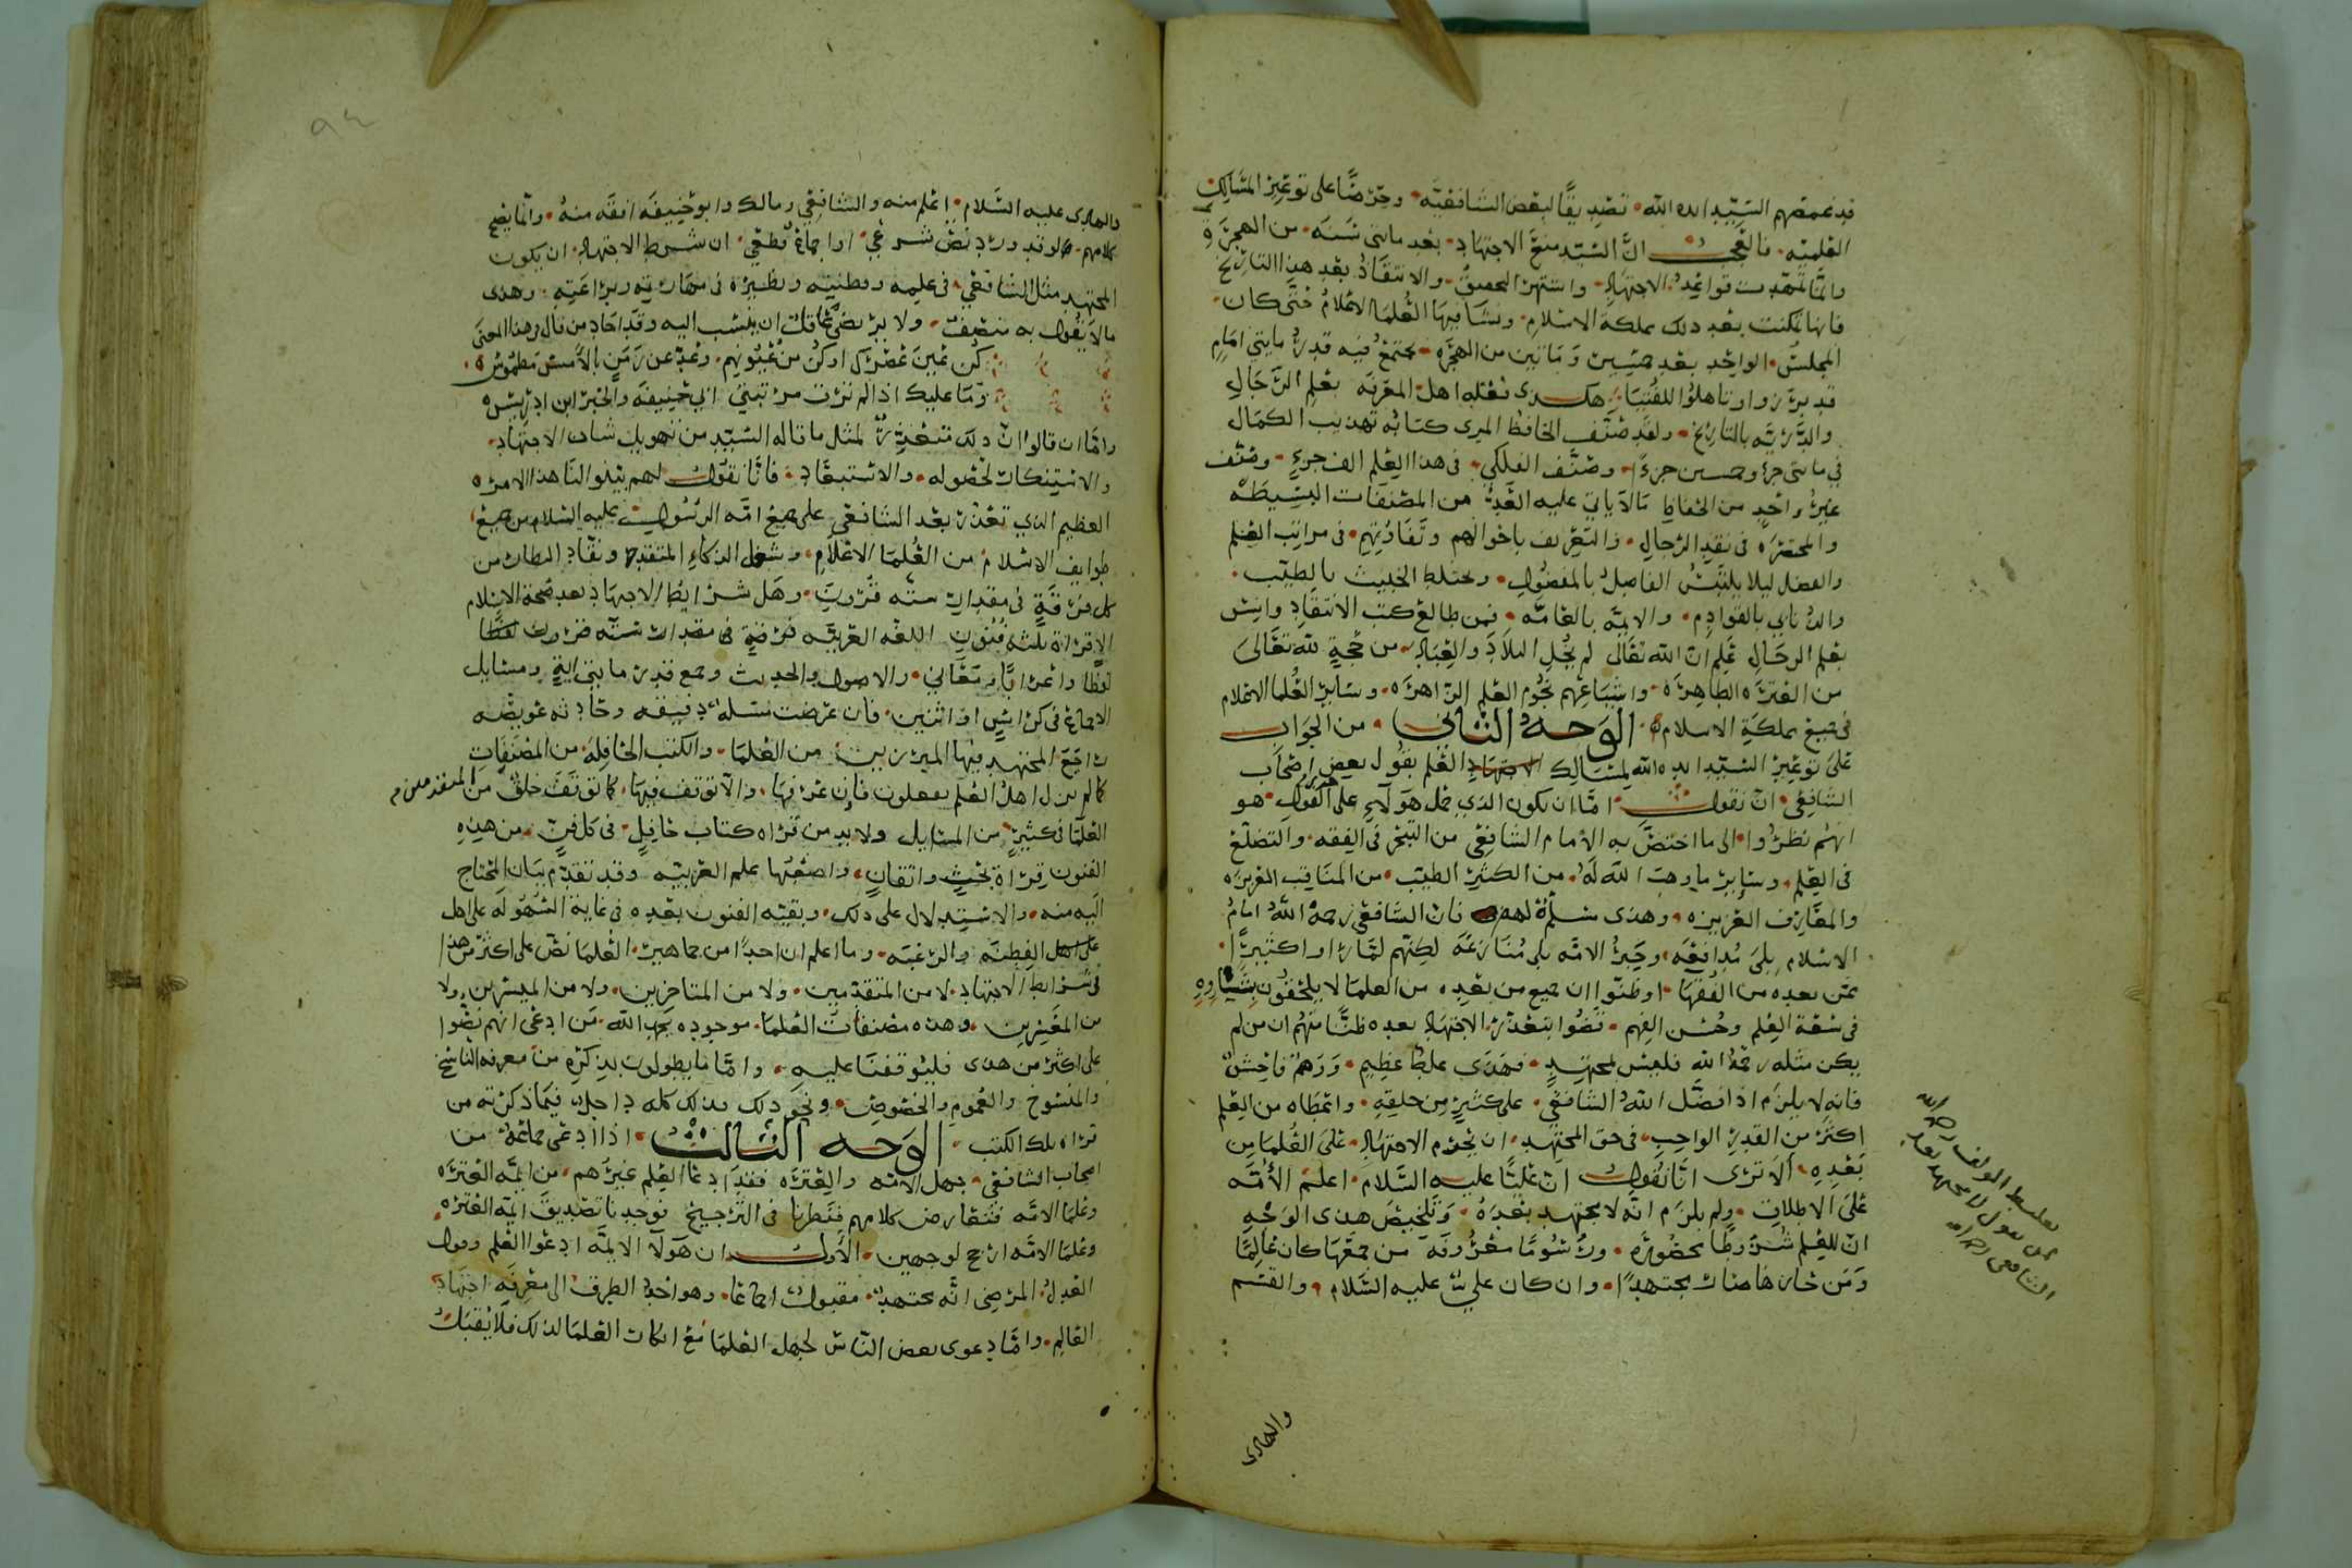 قد غمصهم السيد ايده الله تصديقًا لبعض الشافعيه وحرصًا على توعير المسالك
العلميه فالعجب ان السيد منع الاجتهاد بعد مايتى سنه من الهجرة
وانما تمهدت قواعد الاجتهاد والانتقاد بعد هذا التاريخ
فانها تمكنت بعد ذلك مملكة الاسلام العلما الاعلام حتى كان
المجلس الواحد بعد وماتين من الهجره يجتمع فيه قدر مايتي امام
قد برزوا وتاهلوا للفتيا هكذى نقله اهل المعرفه بعلم الرجال
والدريه بالتاريخ ولقد صنف الحافظ المزى كتابه تهذيب الكمال
في مايتى جزء وخمسين جزءًا وصنف الفلكي فى هذا العلم الف جزء وصنف
غير واحد من الحفاظ مالا ياتي عليه العد من المصنفات البسيطه
والمختصره فى نقد الرجال والتعريف باحوالهم وتفاوتهم فى مراتب العلم
والفضل ليلا يلتبس الفاضل بالمفضول ويختلط الخبيث بالطيب
والذنابي بالقوادم والايمه بالعامه فمن طالع كتب الانتقاد وانس
بعلم الرجال علم ان الله تعالى لم يخل البلاد والعباد من حجة لله تعالى
من العتره الطاهره واشياعهم نجوم العلم الزاهره وساير العلما الاعلام
فى جميع مملكة الاسلام الوجه الثاني من الجواب
على توعير السيد ايده الله لمسالك الاجتهاد العلم بقول بعض اصحاب
الشافعي ان نقول اما ان يكون الذي حمل هولاء على القول هو
انهم نظروا الى ما اختص به الامام الشافعي من التبحر فى الفقه والتضلع
فى العلم وساير ما وهب الله له من الكثير الطيب من المناقب الغزيره
والمعارف العزيزه وهذى مسلم لهم فان الشافعي رحمه الله امام
الاسلام بلى مدافعه وحبر الامه بلى منازعه لكنهم لما راوا كثيرًا
ممن بعده من الفقها او ظنوا ان جميع من بعده من العلما لا يلحقون بشاوه
فى سعة العلم وحسن الفهم قضوا بتعذر الاجتهاد بعده ظنًا منهم ان من لم
يكن مثله رحمه الله فليس بمجتهد فهذى غلط عظيم ووهم فاحش
فانه لا يلزم اذا فضل الله الشافعي على كثير من خلقه واعطاه من العلم
اكثر من القدر الواجب فى حق المجتهد ان يحرم الاجتهاد على العلما من
بعده الا ترى انا نقول ان عليًا عليه السلام اعلم الامه
على الاطلاق ولم يلزم انه لا مجتهد بعده وتلخيص هذى الوجه
ان للعلم شروطًا محصوره ورسومًا معروفه من جمعها كان عالمًا
ومن حازها صار مجتهدًا وان كان علي عليه السلام والقسم
والهادى
والهادى عليه السلام اعلم منه والشافعي ومالك وابو حنيفه افقه منه وانما يصح
كلامهم لو قد ورد نص شرعي او اجماع قطعي ان شرط الاجتهاد ان يكون
المجتهد مثل الشافعي فى علمه وفطنته ونظيره فى مهارته وبراعته وهذى
مالا يقول به منصف ولا يرتضي عاقل ان ينسب اليه وقد اجاد من قال في هذا المعنى
وما عليك اذا لم ترق مرتبتي ابي حنيفه والحبر ابن ادريس
واما ان قالوا ان ذلك متعذر لمثل ما قاله السيد من تهويل شان الاجتهاد
والاستنكار لحصوله والاستبعاد فانا نقول لهم بينوا لنا هذا الامر
العظيم الذي تعذر بعد الشافعي على جميع امه الرسول عليه السلام من جميع
طوايف الاسلام من العلما الاعلام
وهل شرايط الاجتهاد بعد صحة الاسلام
الا قراة ثلثه فنون اللغه العربيه
لفظًا واعرابًا ومعاني والاصول والحديث وجمع قدر مايتى اية ومسايل
الاجماع فى كراس او اثنين فان عرضت مسله دقيقه وحادثه عويصه
راجع المجتهد فيها المبرزين من العلما والكتب الحافله من المصنفات
كما لم يزل اهل العلم يفعلون فان عرفها والا توقف فيها كما توقف خلق من المتقدمين من
العلما فى كثير من المسايل ولا بد من قراه كتاب حافل فى كل فن من هذه
الفنون قراة بحث واتقان واصعبها علم العربيه وقد تقدم بيان المحتاج
اليه منه والاستدلال على ذلك وبقيه الفنون بعده فى غاية السهوله على اهل
على اهل الفطنه والرغبه وما اعلم ان احدًا من جماهير العلما نص على اكثر من هذا
فى شرايط الاجتهاد لا من المتقدمين ولا من المتاخرين ولا من الميسرين ولا
من المعسرين وهذه مصنفات العلما موجوده بحمد الله من ادعى انهم نصوا
على اكثر من هذى فليوقفنا عليه واما ما يطولون بذكره من معرفه الناسخ
والمنسوخ والعموم والخصوص ونحو ذلك فذلك كله داخل فيما ذكرته من
قراه تلك الكتب الوجه الثالث اذا ادعى جماعة من
اصحاب الشافعي جهل الامه والعتره فقد ادعا العلم غيرهم من ايمه العتره
وعلما الامه فتعارض كلامهم فنظرنا فى الترجيح فوجدنا تصديق ايمه العتره
وعلما الامه ارجح لوجهين الاول ان هولا الايمه ادعوا العلم وقول
العدل المرضى انه مجتهد مقبول اجماعًا وهو احد الطرق الى معرفه اجتهاد
العالم واما دعوى بعض الناس لجهل العلما مع انكار العلما لذلك فلا يقبل